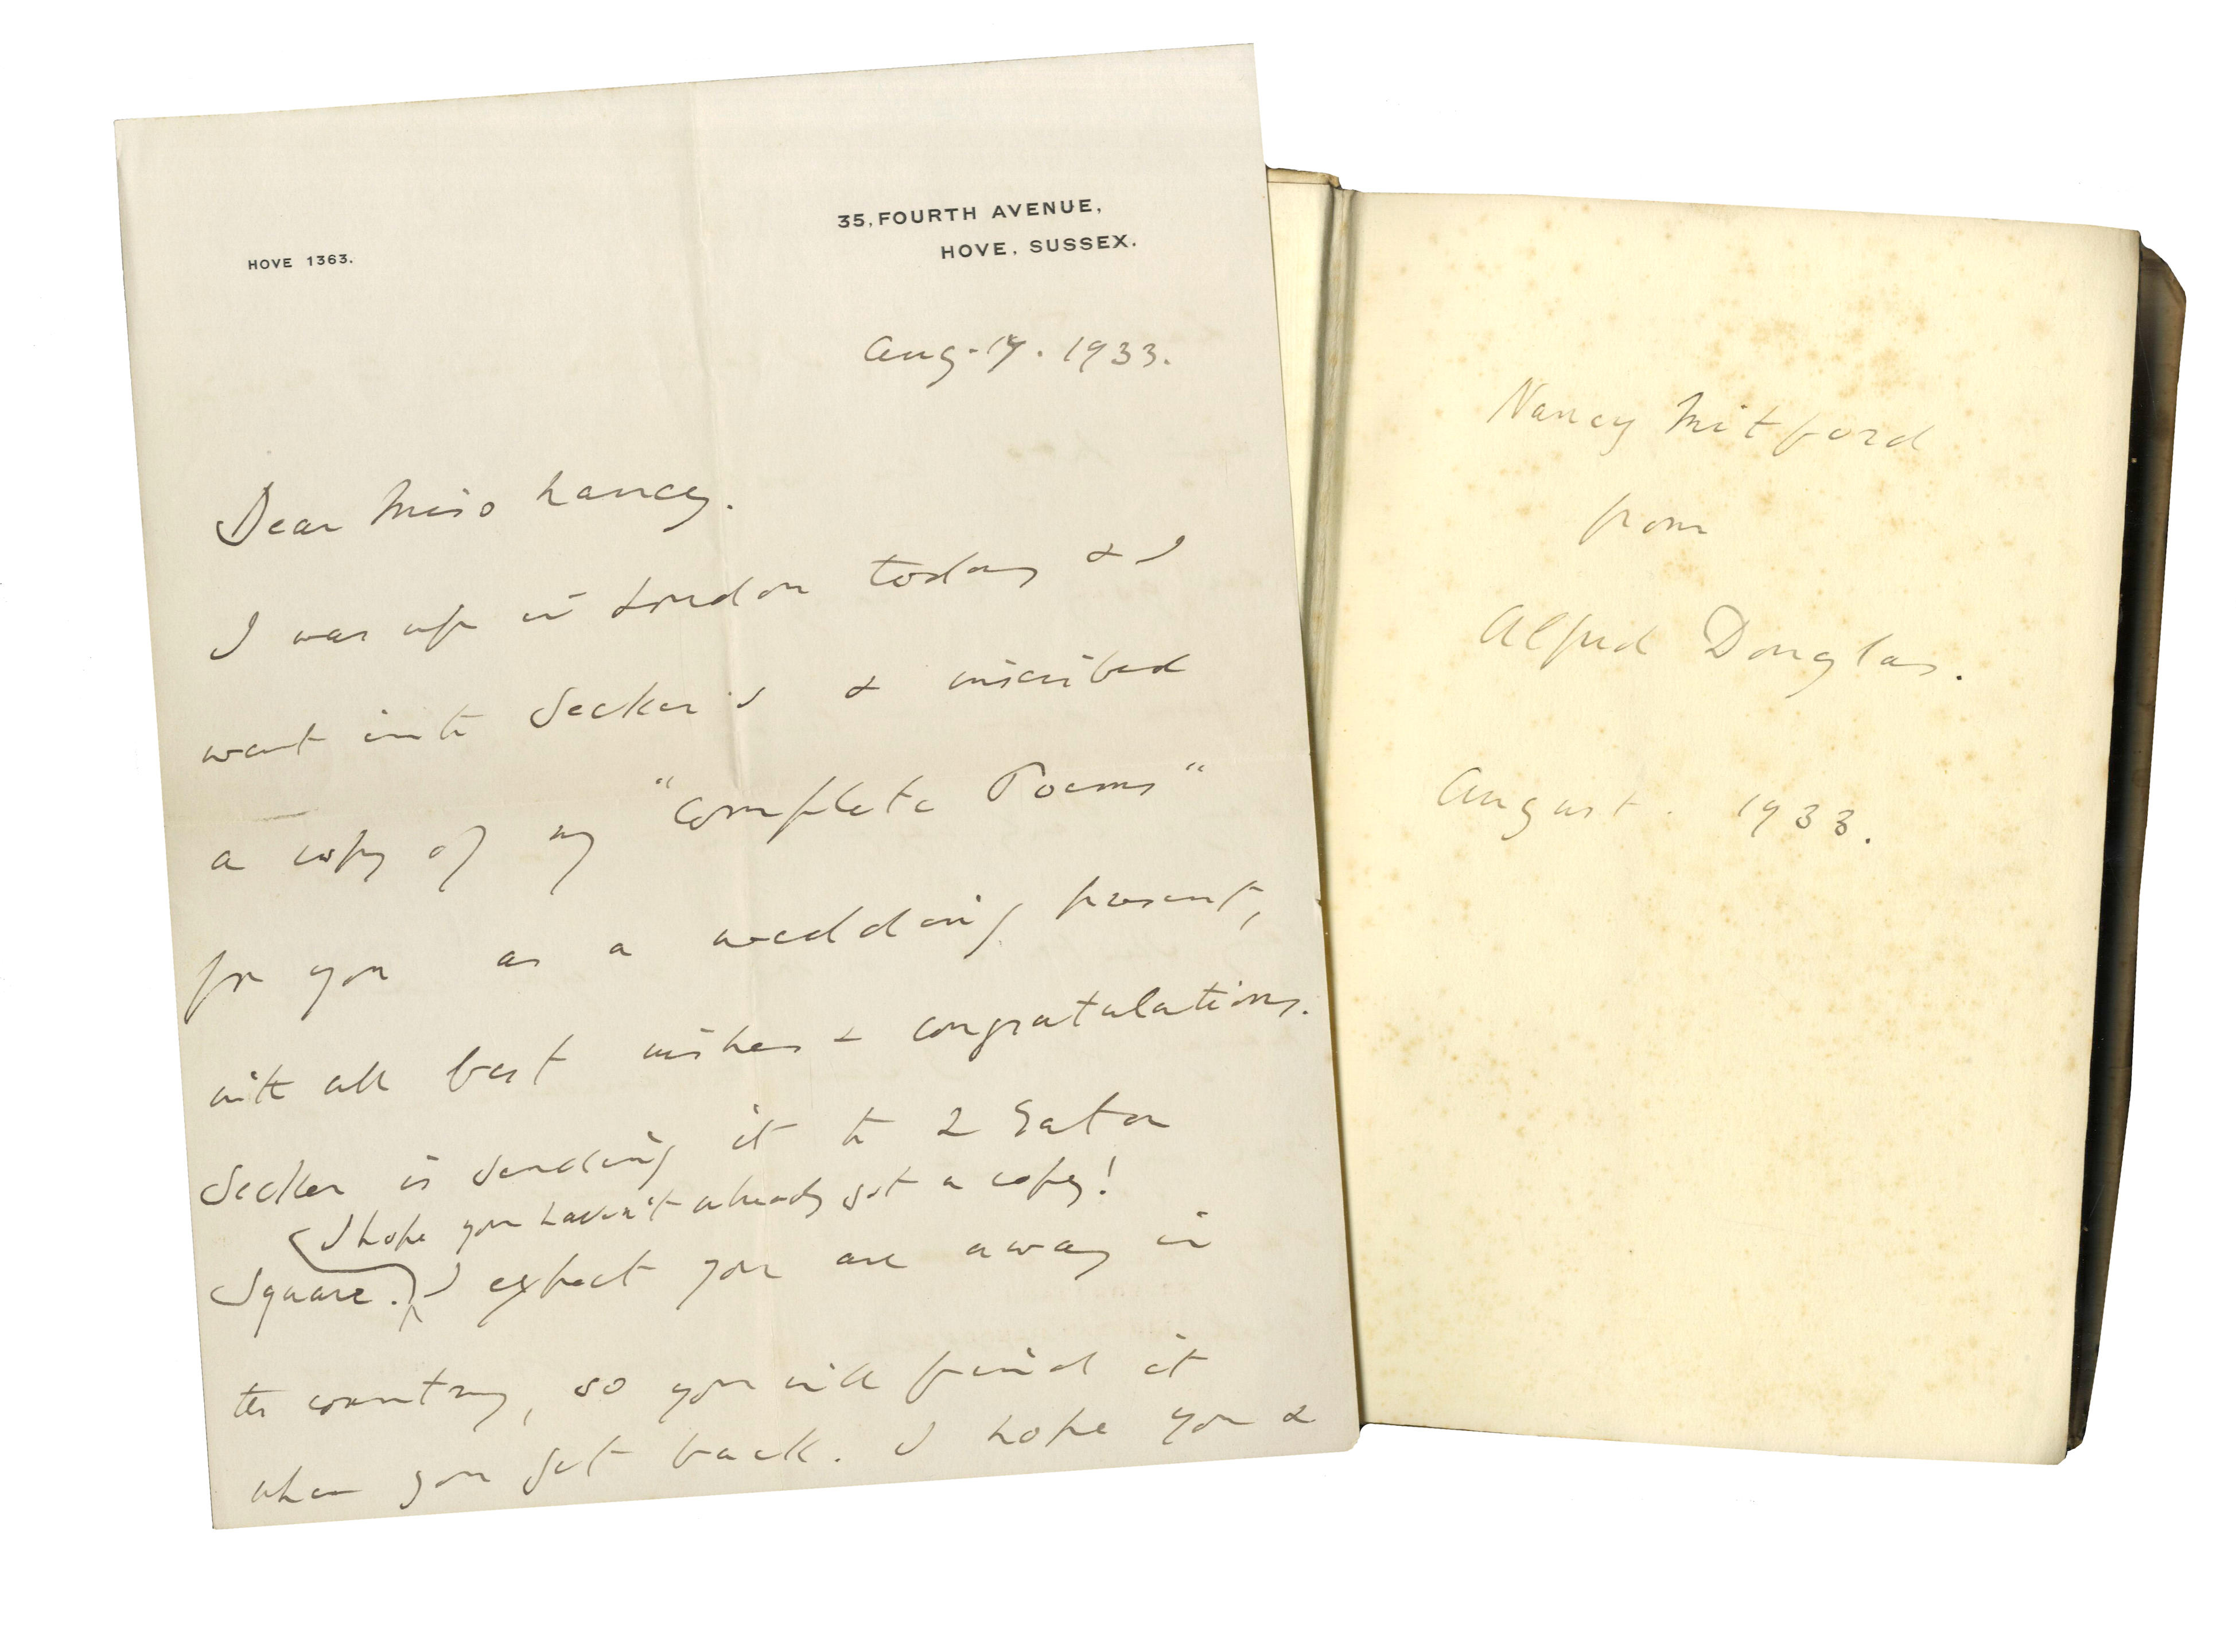 HOVE 1363.
35, FOURTH AVENUE,
HOVE, SUSSEX.
Aug. 17. 1933.
Dear Miss Nancy.
I was up in London today & I
went into Secker's & inscribed
a copy of my "Complete Poems"
for you as a wedding present,
with all best wishes & congratulations.
Secker is sending it to 2 Eaton
I hope you haven't already got a copy!
Square. I expect you are away in
the country, so you will find it
when you get back. I hope you &
Nancy Mitford
from
Alfred Douglas.
August. 1933.